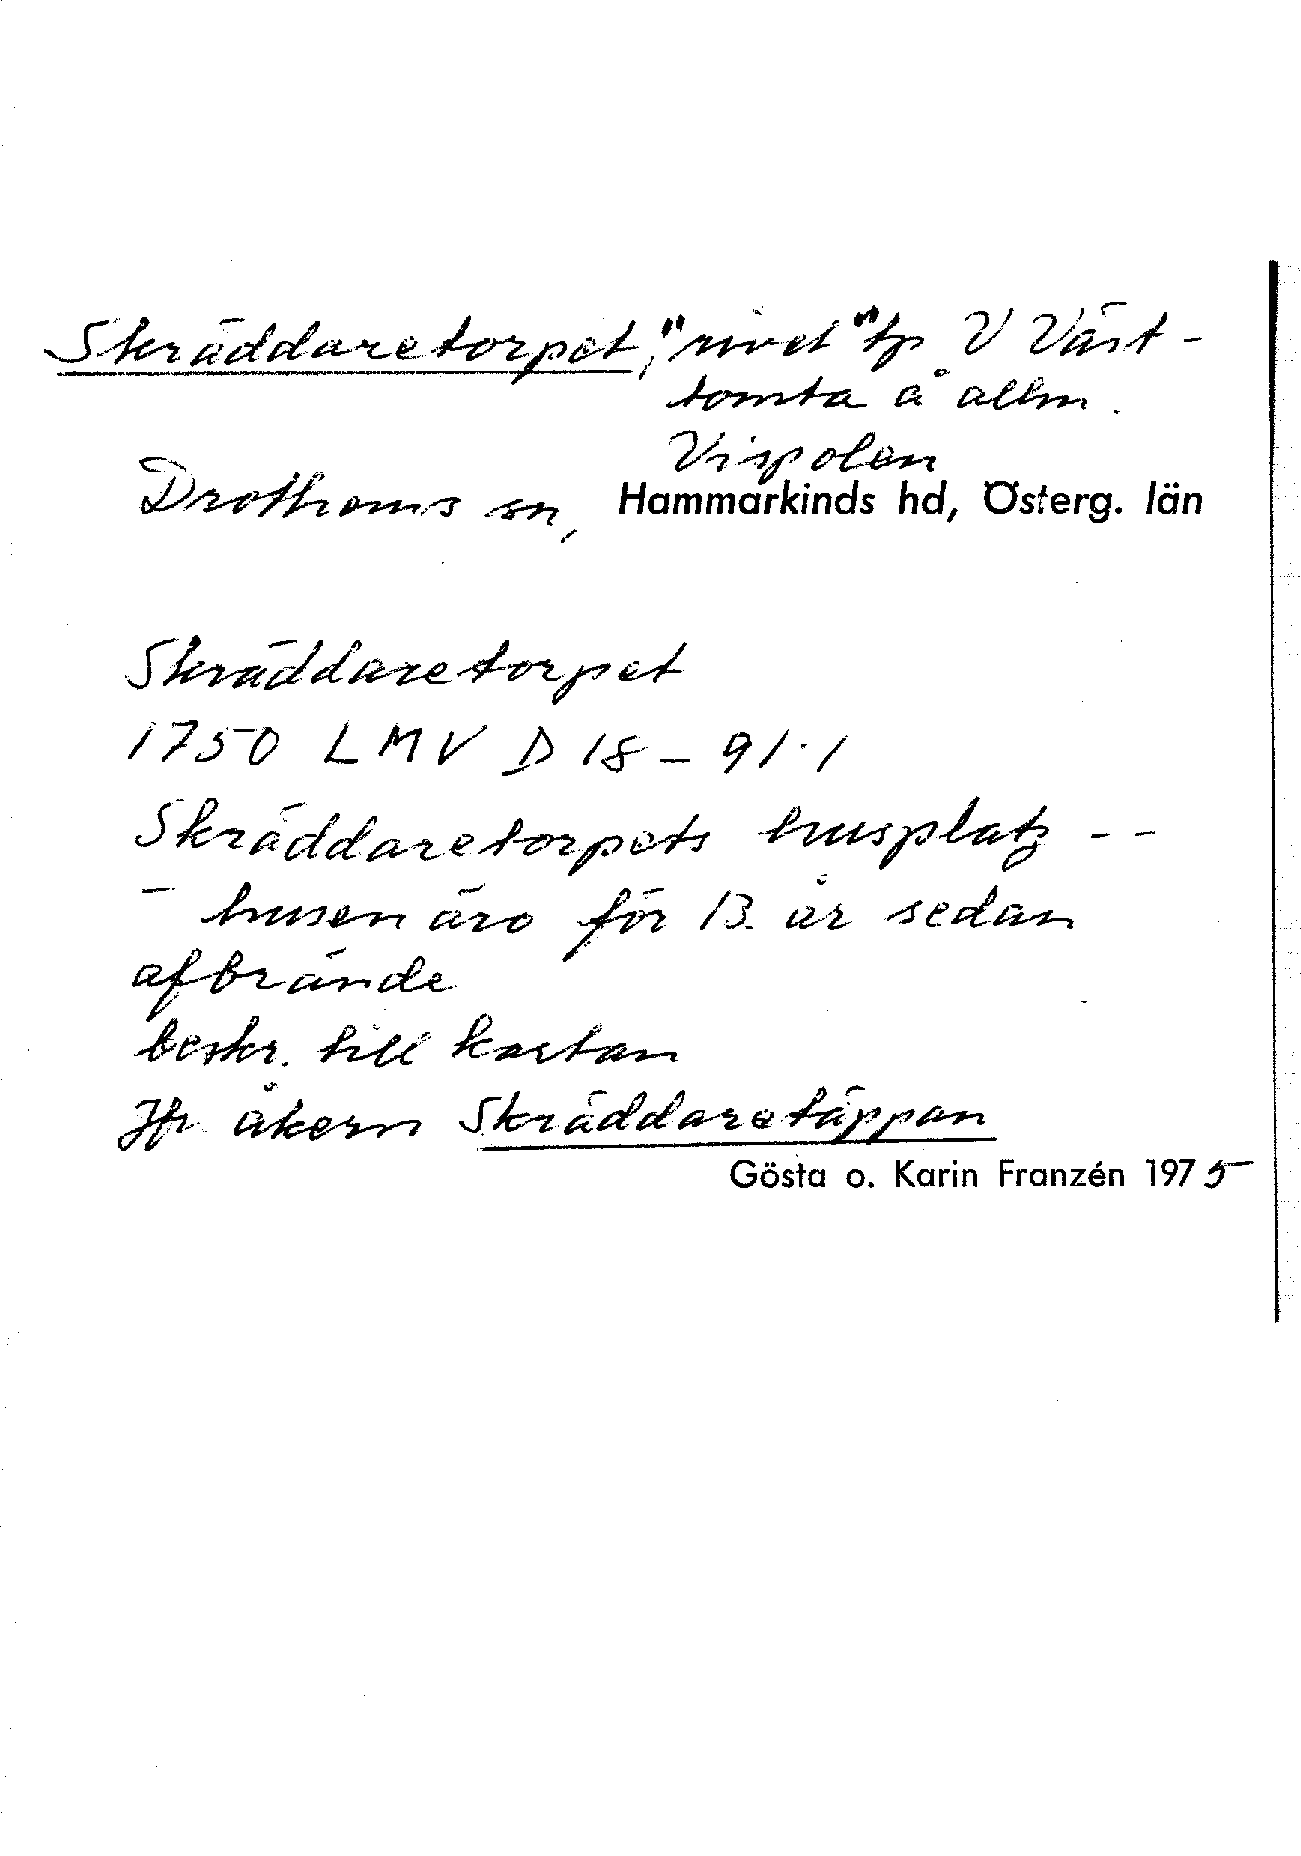 Skräddaretorpet, "rivet" tp V Väst-
tomta å allm.
Vispolen
Drothems sn, Hammarkinds hd, Österg. län
Skräddaretorpet
1750 LMV D 18 - 91:1
Skräddaretorpets husplatz - -
- husen äro för 13. år sedan
afbrände
beskr. till kartan
Jfr åkern Skräddaretäppan
Gösta o. Karin Franzén 1975